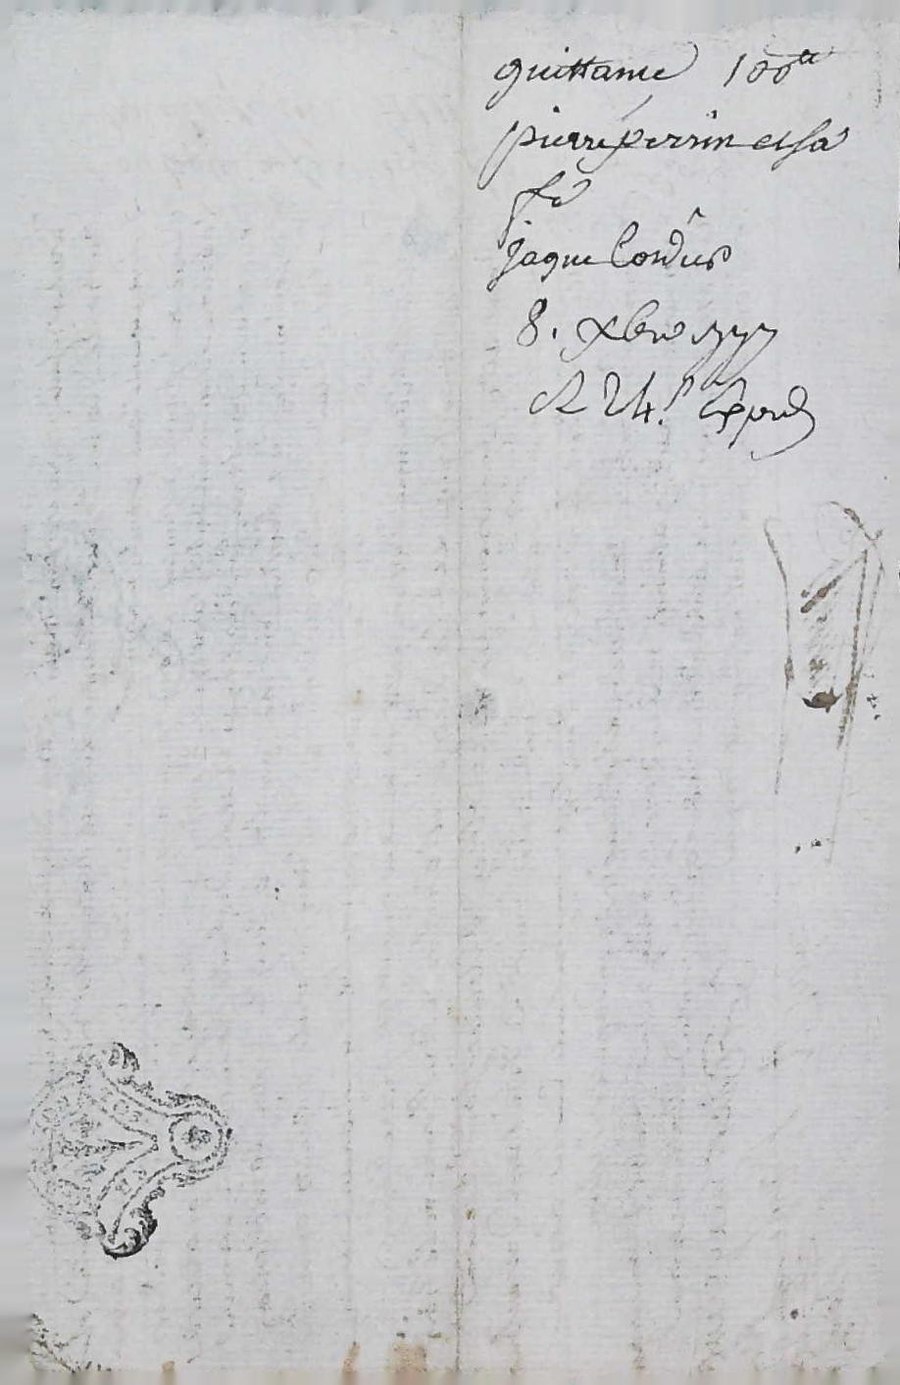 quittance 100ᵗᵗ
pierre perrin et sa
fe
jaque Cordier
8. xbre
24. Apvril